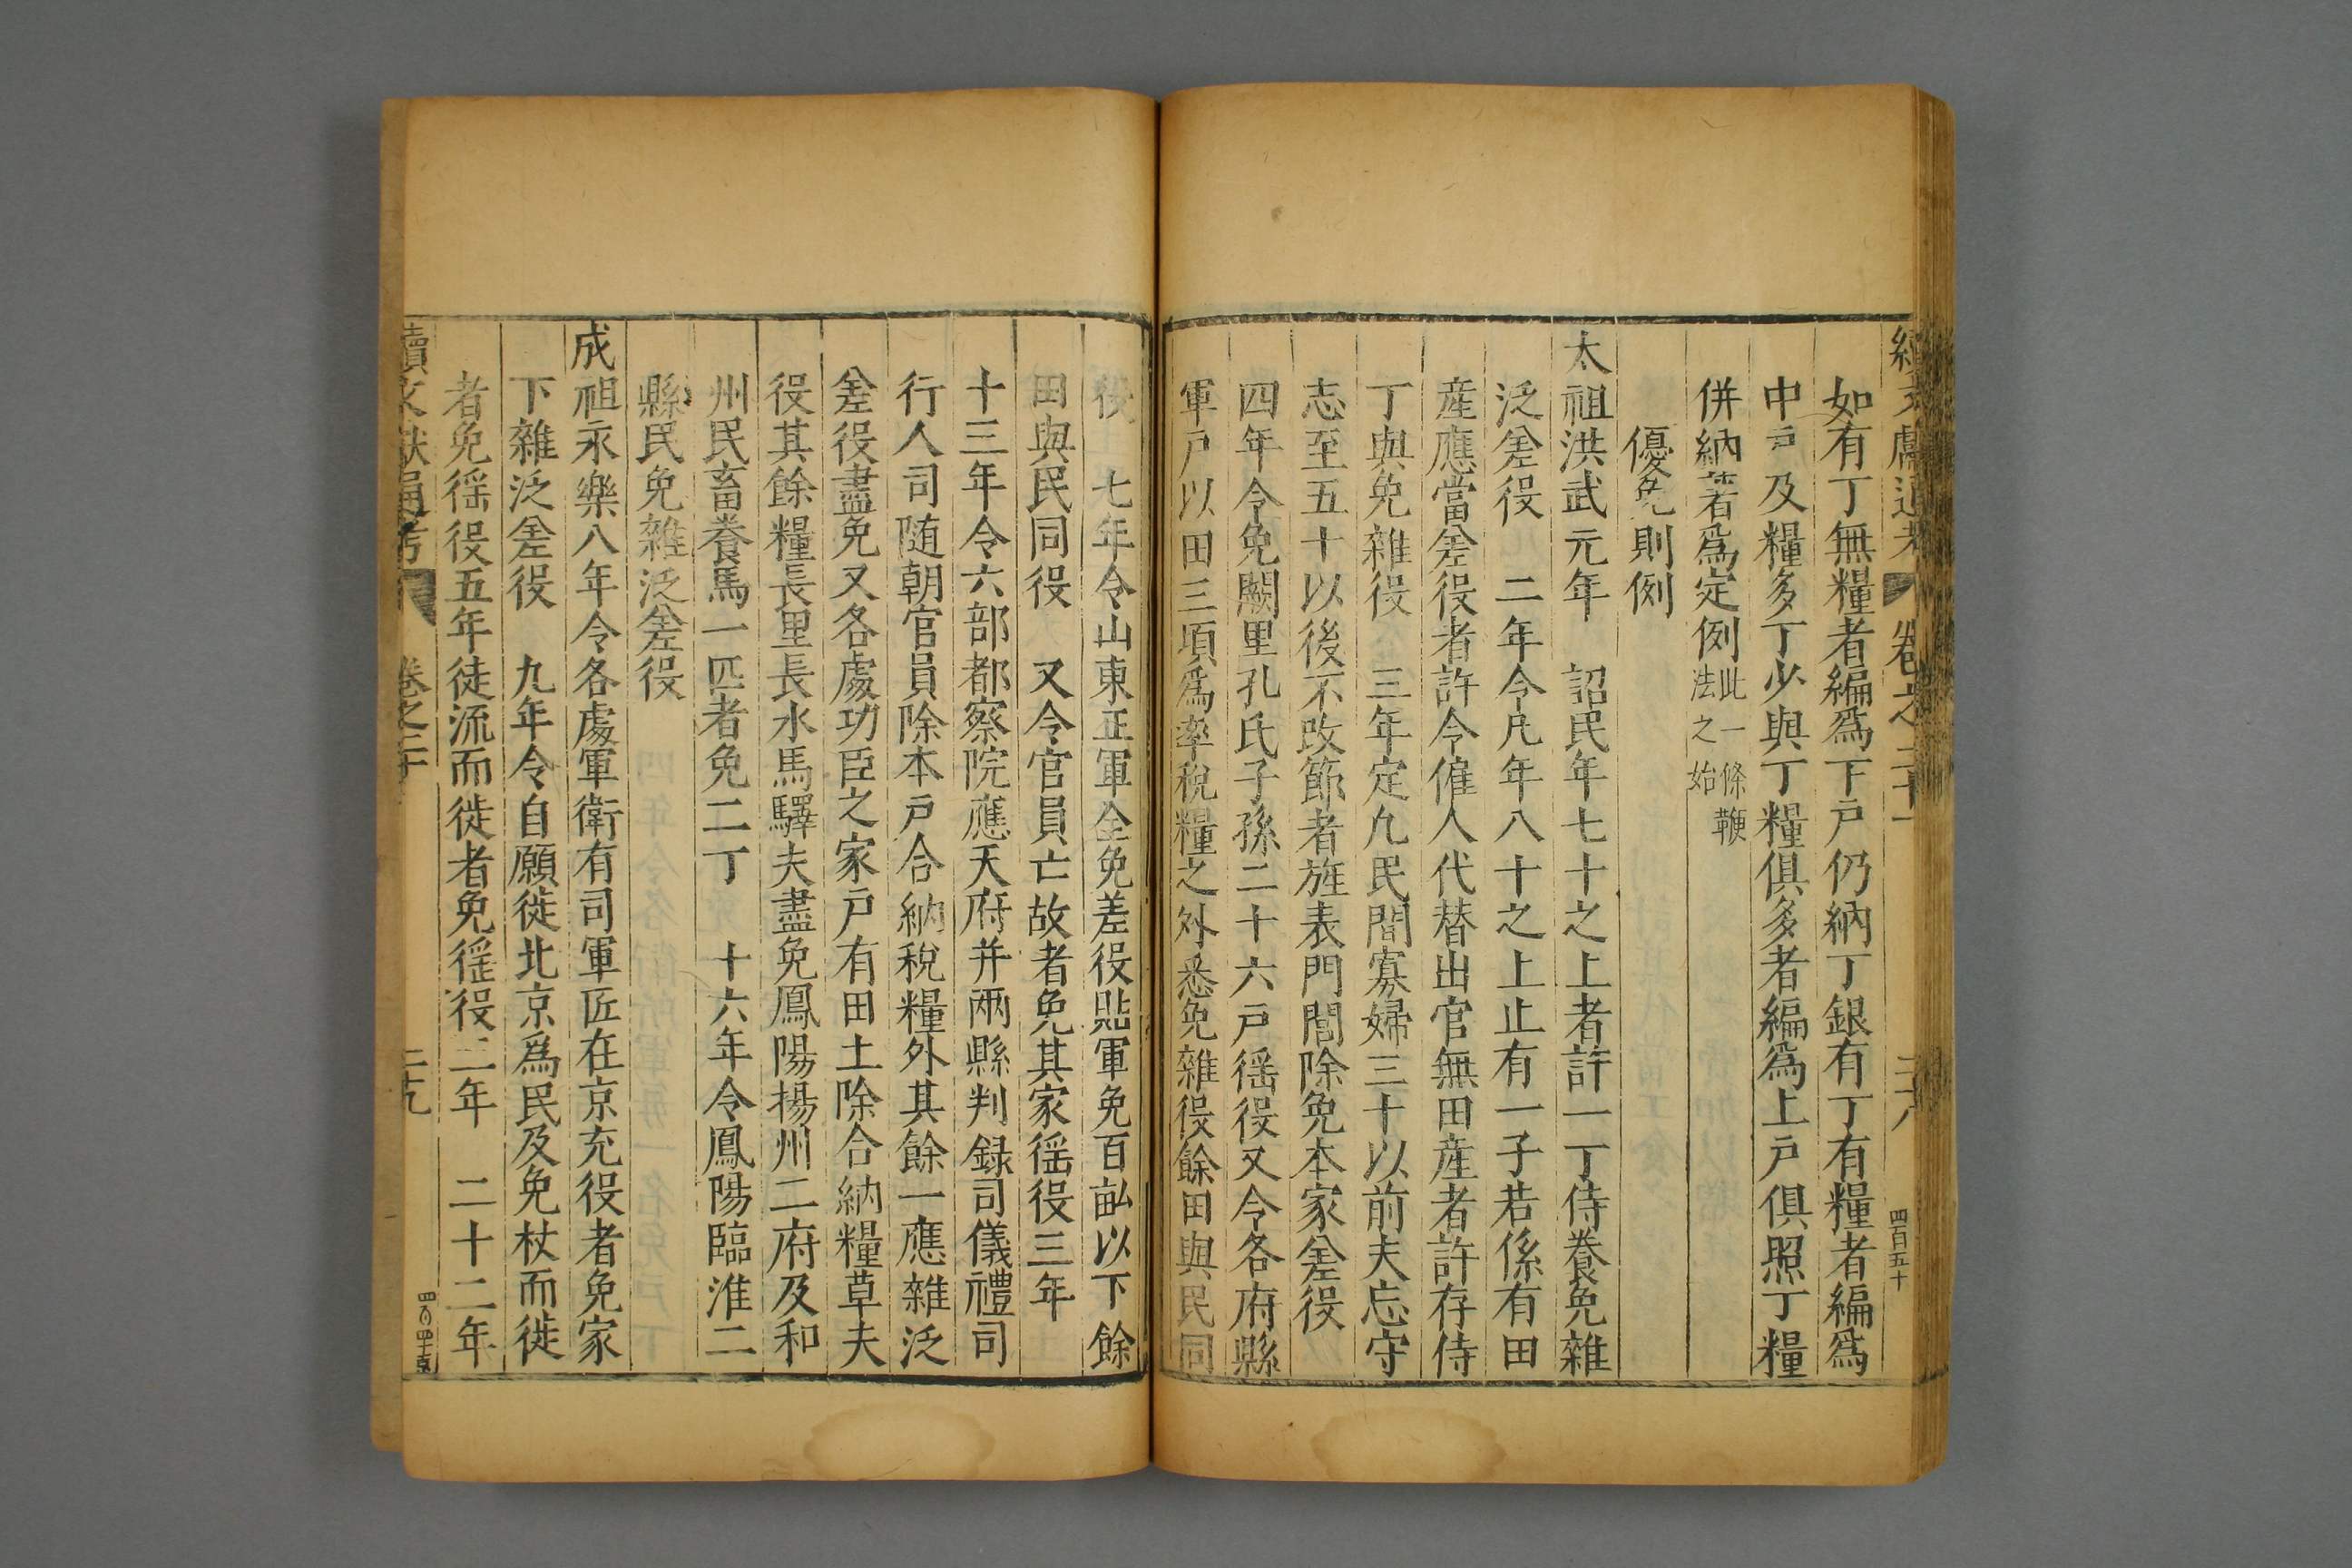 續文獻通考 卷之二十一 二十八 四百五十
如有丁無糧者編爲下戶仍納丁銀有丁有糧者編爲
中戶及糧多丁少與丁糧俱多者編爲上戶俱照丁糧
併納著爲定例此一條鞭法之始
優免則例
太祖洪武元年 詔民年七十之上者許一丁侍養免雜
泛差役 二年令凡年八十之上止有一子若係有田
産應當差役者許令僱人代替出官無田産者許存侍
丁與免雜役 三年定凡民間寡婦三十以前夫亡守
志至五十以後不改節者旌表門閭除免本家差役
四年令免闕里孔氏子孫二十六戶徭役又令各府縣
軍戶以田三項爲率稅糧之外悉免雜役餘田與民同
役 七年令山東正軍全免差役貼軍免百畝以下餘
田與民同役 又令官員亡故者免其家徭役三年
十三年令六部都察院應天府并兩縣判録司儀禮司
行人司随朝官員除本戶合納稅糧外其餘一應雜泛
差役盡免又各處功臣之家戶有田土除合納糧草夫
役其餘糧長里長水馬驛夫盡免鳳陽揚州二府及和
州民畜養馬一匹者免二丁 十六年令鳳陽臨淮二
縣民免雜泛差役
成祖永樂八年令各處軍衛有司軍匠在京充役者免家
下雜泛差役 九年令自願徙北京爲民及免杖而徙
者免徭役五年徒流而徙者免徭役三年 二十二年
續文獻通考 卷之二十 二十九